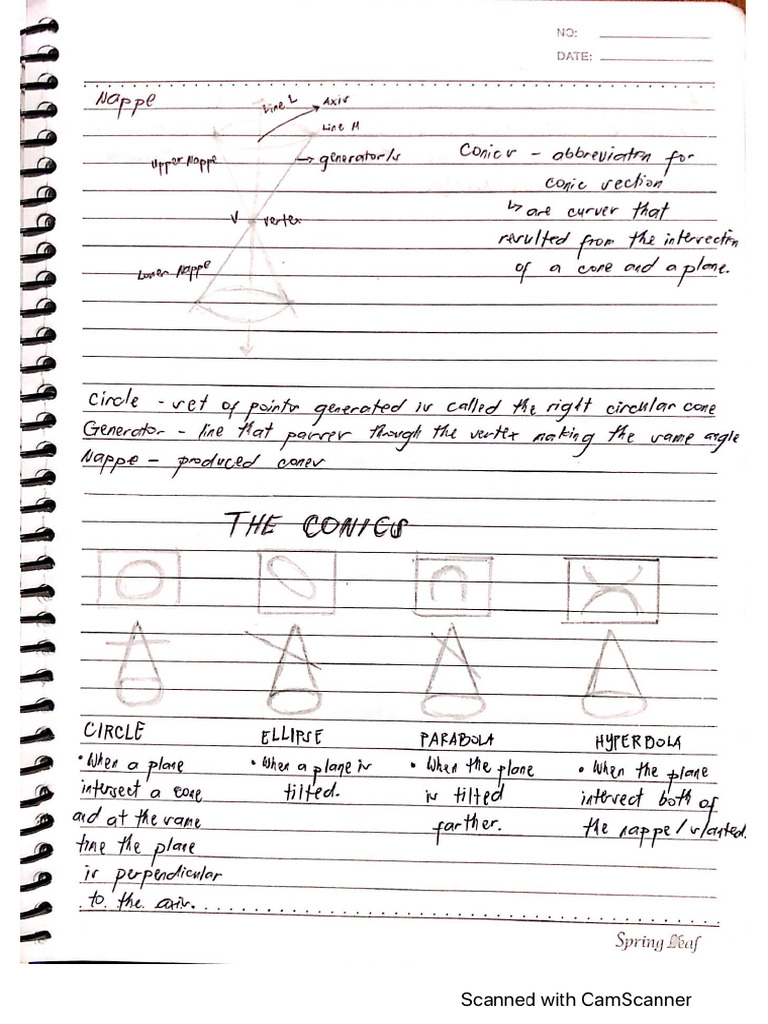 NO:
DATE:
Nappe
Line L
Axis
Line M
Upper Nappe
generator/s
V vertex
Lower Nappe
Conics - abbreviation for
conic section
↳ are curves that
resulted from the intersection
of a cone and a plane.
Circle - set of points generated is called the right circular cone
Generator - line that passes through the vertex making the same angle
Nappe - produced cones
THE CONICS
CIRCLE
• When a plane
intersect a cone
and at the same
time the plane
is perpendicular
to the axis.
ELLIPSE
• When a plane is
tilted.
PARABOLA
• When the plane
is tilted
farther.
HYPERBOLA
• When the plane
intersect both of
the nappe/slanted.
Spring Leaf
Scanned with CamScanner